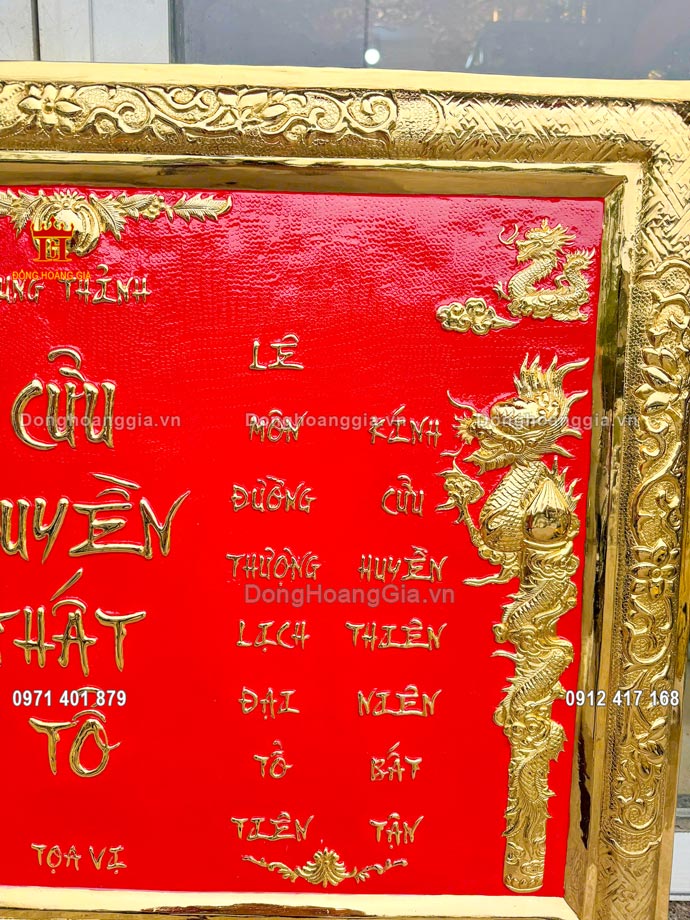 ĐỒNG HOÀNG GIA
UNG THỈNH
CỬU
UYỀN
HẤT
TỔ
TỌA VỊ
LÊ
MÔN
ĐƯỜNG
THƯỢNG
LỊCH
ĐẠI
TỔ
TIÊN
KÍNH
CỬU
HUYỀN
THIÊN
NIÊN
BẤT
TẬN
Donghoanggia.vn
Donghoanggia.vn
Donghoanggia.vn
DongHoangGia.vn
0971 401 879
0912 417 168